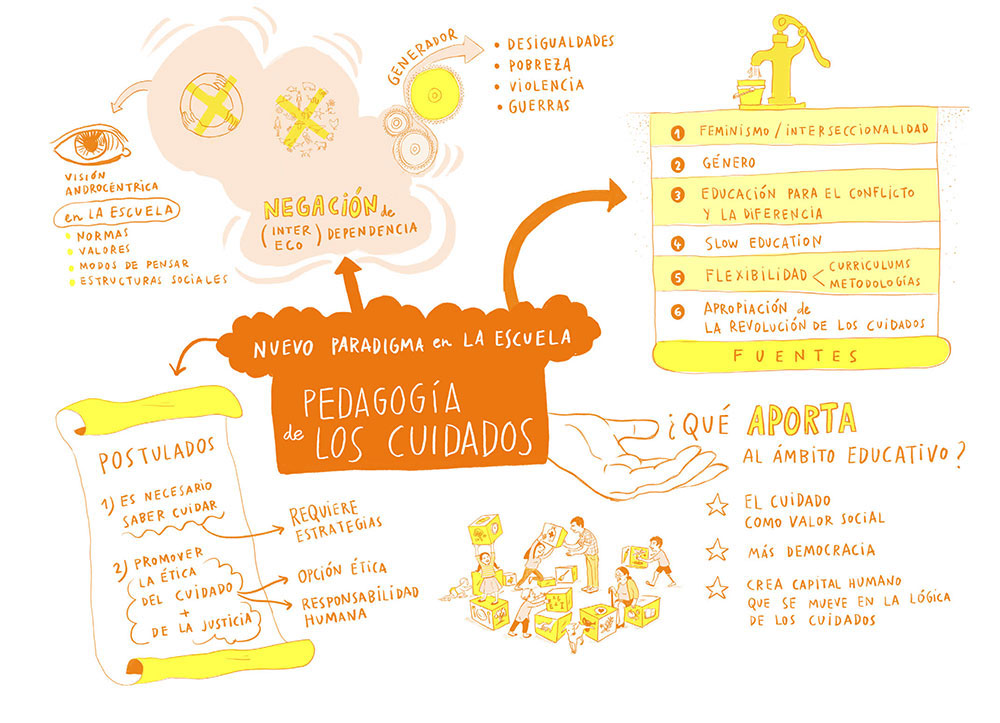 GENERADOR
• DESIGUALDADES
• POBREZA
• VIOLENCIA
• GUERRAS
VISIÓN
ANDROCÉNTRICA
en LA ESCUELA
• NORMAS
• VALORES
• MODOS DE PENSAR
• ESTRUCTURAS SOCIALES
NEGACIÓN de
(INTER ECO) DEPENDENCIA
1 FEMINISMO / INTERSECCIONALIDAD
2 GÉNERO
3 EDUCACIÓN PARA EL CONFLICTO
Y LA DIFERENCIA
4 SLOW EDUCATION
5 FLEXIBILIDAD < CURRICULUMS
METODOLOGÍAS
6 APROPIACIÓN de
LA REVOLUCIÓN DE LOS CUIDADOS
FUENTES
NUEVO PARADIGMA en LA ESCUELA
PEDAGOGÍA
de LOS CUIDADOS
POSTULADOS
1) ES NECESARIO
SABER CUIDAR
REQUIERE
ESTRATEGIAS
2) PROMOVER
LA ÉTICA
DEL CUIDADO
+
DE LA JUSTICIA
OPCIÓN ÉTICA
RESPONSABILIDAD
HUMANA
¿QUÉ APORTA
AL ÁMBITO EDUCATIVO?
EL CUIDADO
COMO VALOR SOCIAL
MÁS DEMOCRACIA
CREA CAPITAL HUMANO
QUE SE MUEVE EN LA LÓGICA
DE LOS CUIDADOS